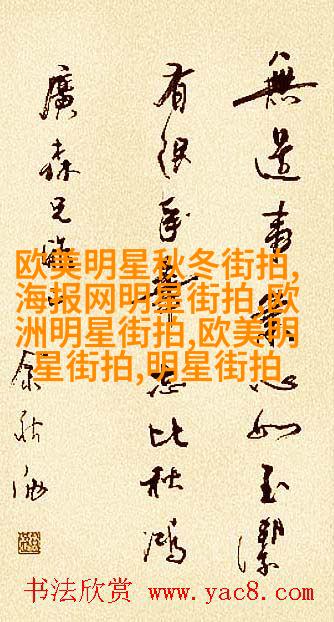 無邊事業心如玉潔
有限年華志比秋鴻
廣森兄
余秋雨
欧美明星秋冬街拍,
海报网明星街拍,欧
洲明星街拍,欧美明
星街拍,明星街拍
书法欣赏 www.yac8.com